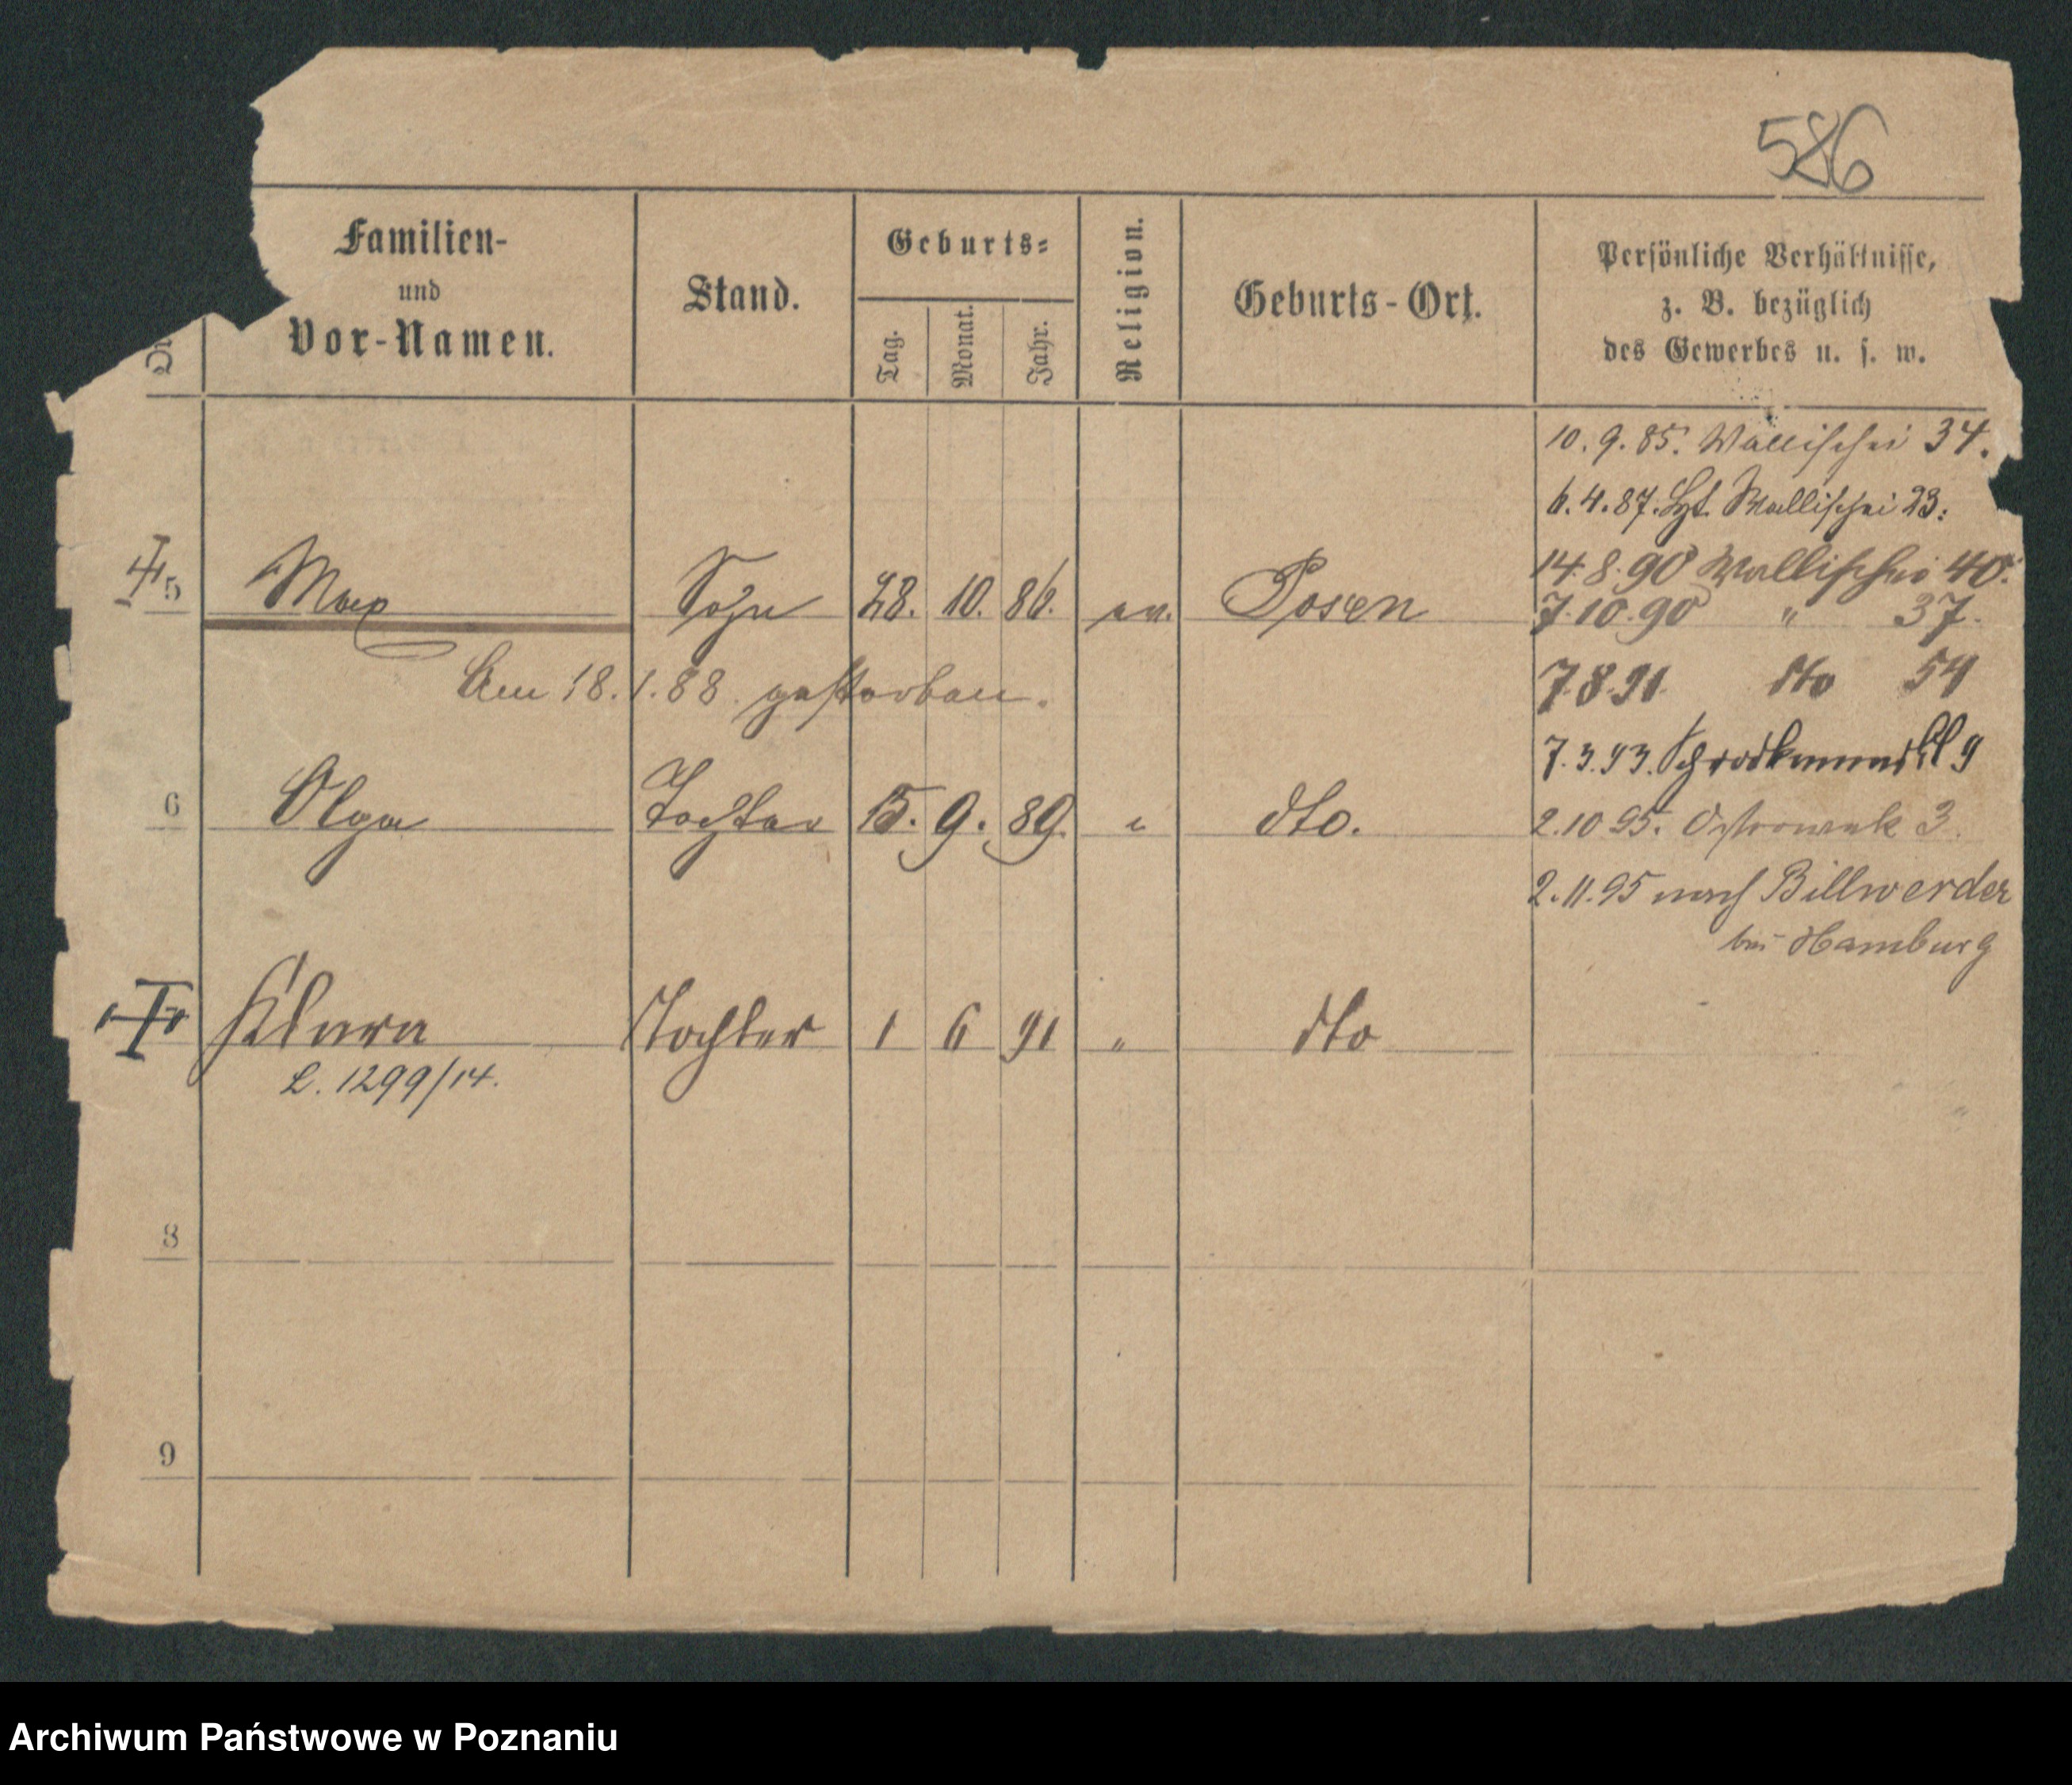 586
Familien-
und
Vor-Namen.
Stand.
Geburts-
Tag.
Monat.
Jahr.
Religion.
Geburts-Ort.
Persönliche Verhältnisse,
z. B. bezüglich
des Gewerbes u. s. w.
10. 9. 85. Wallischei 34.
6. 4. 87. Wallischei 23.
14. 8. 90 Wallischei 40.
5 Max Sohn 28. 10. 86. ev. Posen
7. 10. 90 " 37.
Am 18. 1. 88. gestorben.
7. 8. 91. dto 54
7. 3. 93. 9
6 Olga Tochter 15. 9. 89. " dto.
2. 10 95. Ostrowek 3.
2. 11. 95 nach Billwerder
bei Hamburg
Klara Tochter 1 6 91 " dto
L. 1299/14.
8
9
Archiwum Państwowe w Poznaniu